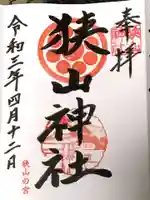 奉拝
狭山神社
令和三年四月十二日
狭山の宮